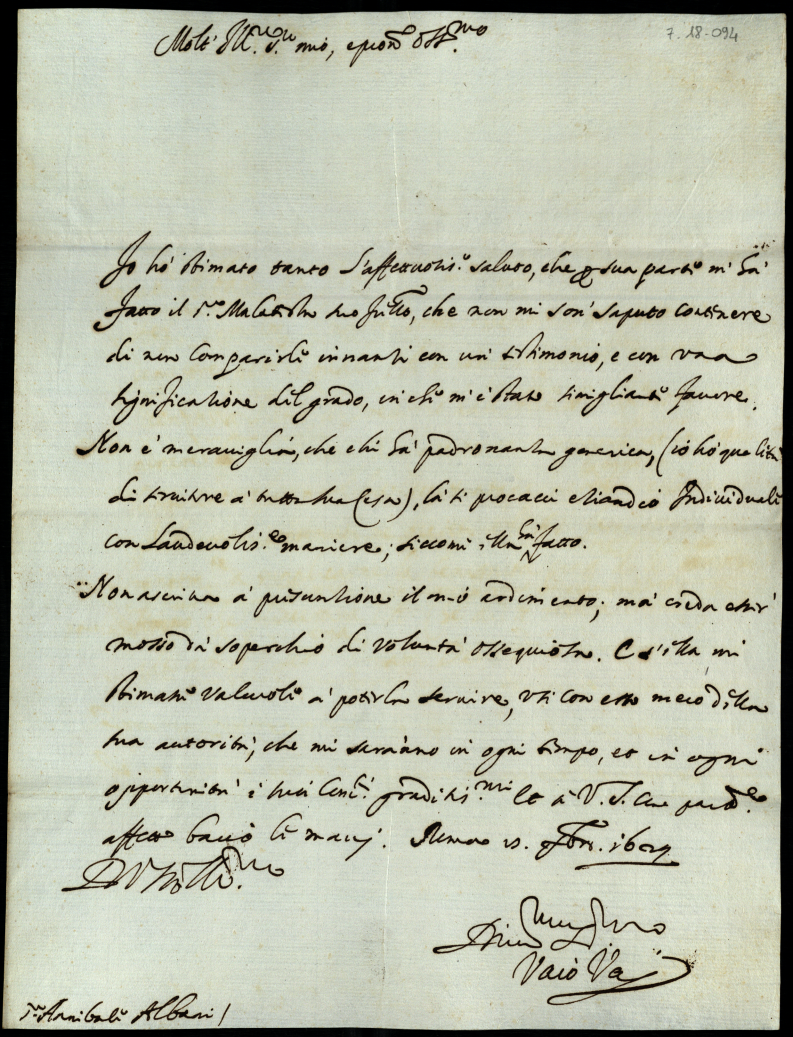 7. 18-094
Molt' Ill.re S.r mio, e pron Oss.mo
Io hò stimato tanto l'affettuosis.o saluto, che p sua parte m' hà
fatto il S.r Malatesta suo frllo, che non mi son' saputo continere
di non comparirle innanti con un' testimonio, e con una
significatione del grado, in che m' è stato simigliante favore.
Non è meraviglia, che chi hà padronanza generica, (io hò qualità
di servitore à tutta sua Casa), la si procacci etiandio Individuale
con laudevolis.e maniere; siccome ella hà fatto.
Non ascriva à presuntione il mio ardimento; mà creda esser'
mosso dà soperchio di volontà ossequiosa. E s'ella mi
stimasse valevole à poterla servire, usi con esso meco della
sua autorità; che mi saranno in ogni tempo, et in ogni
opportunità i suoi Com.i graditis.mi Et à V. S. con
affetto bacio le mani. Roma 15. 1629
D V S Molt' Ill.re
Vaio Vai
S.r Annibale Albani /